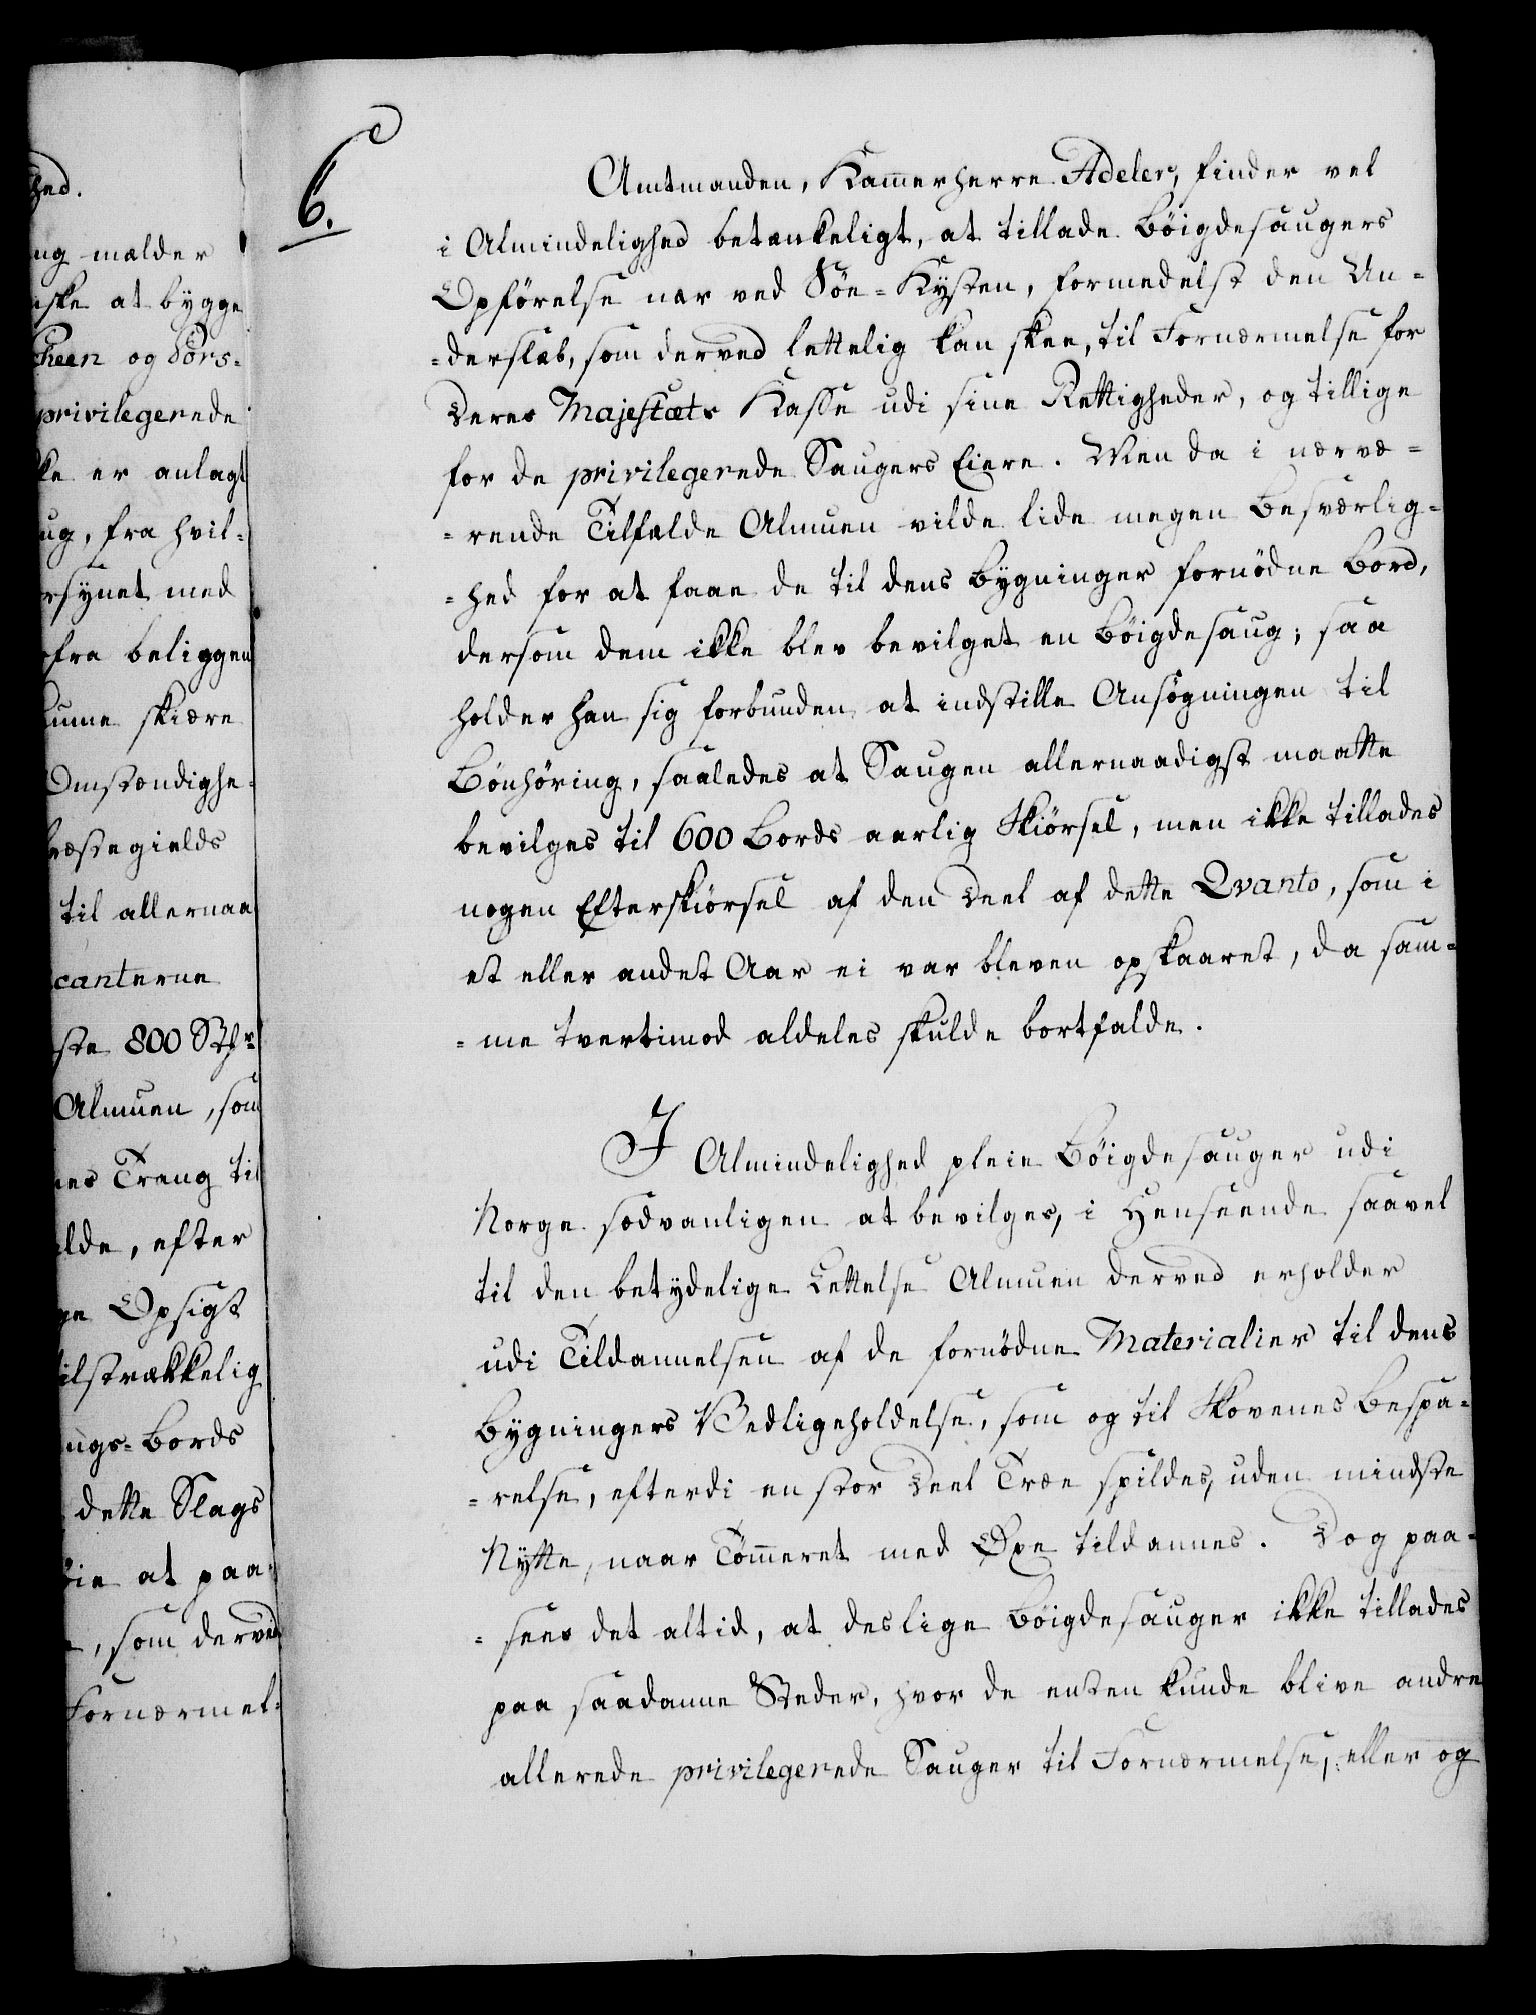 hed.
ug melder
nske at bygge
Theen og Pors-
privilegerede
ke er anlagt
ug, fra hvil-
rsÿnet med
fra beliggen
kunne skiære
Omstændighe-
ræstegields
til allernaa
canterne
ste 800 Rthr
Almuen, som
nes Trang til
lde, efter
ge Opsigt
ilstrækkelig
ugs-Bords
dette Slags
öie at paa-
, som derved
Fornærmel-
6.
Amtmanden, Kammerherre Adeler, finder vel
i Almindelighed betænkeligt, at tillade Böigdesaugers
Opförelse nær ved Söe-Kysten, formedelst den Un-
-derslæb, som derved lettelig kan skee, til Fornærmelse for
Deres Majestæts Kasse udi sine Rettigheder, og tillige
for de privilegerede Saugers Eiere. Men da i nærvæ-
-rende Tilfælde Almuen vilde lide megen Besværlig-
-hed for at faae de til dens Bygninger fornödne Bord,
dersom dem ikke blev bevilget en Böigdesaug; saa
holder han sig forbunden at indstille Ansögningen til
Bönhöring, saaledes at Saugen allernaadigst maatte
bevilges til 600 Bords aarlig Skiörsel, men ikke tillades
nogen Efterskiörsel af den Deel af dette Qvanto, som i
et eller andet Aar ei var bleven opskaaret, da sam-
-me tvertimod aldeles skulde bortfalde.
I Almindelighed pleie Böigdesauger udi
Norge sædvanligen at bevilges, i Henseende saavel
til den betydelige Lettelse Almuen derved erholder
udi Tildannelsen af de fornödne Materialier til dens
Bygningers Vedligeholdelse, som og til Skovenes Bespa-
-relse, efterdi en stor Deel Træe spildes, uden mindste
Nytte, naar Tømmeret med Øxe tildannes. Dog paa-
-sees det altid, at deslige Böigdesauger ikke tillades
paa saadanne Steder, hvor de enten kunde blive andre
allerede privilegerede Sauger til Fornærmelse, eller og